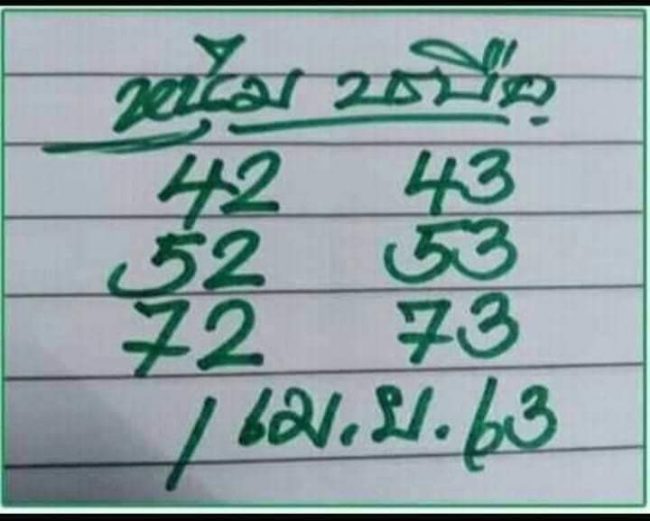 หนุ่ม
42 43
52 53
72 73
1 เม.ย. 63